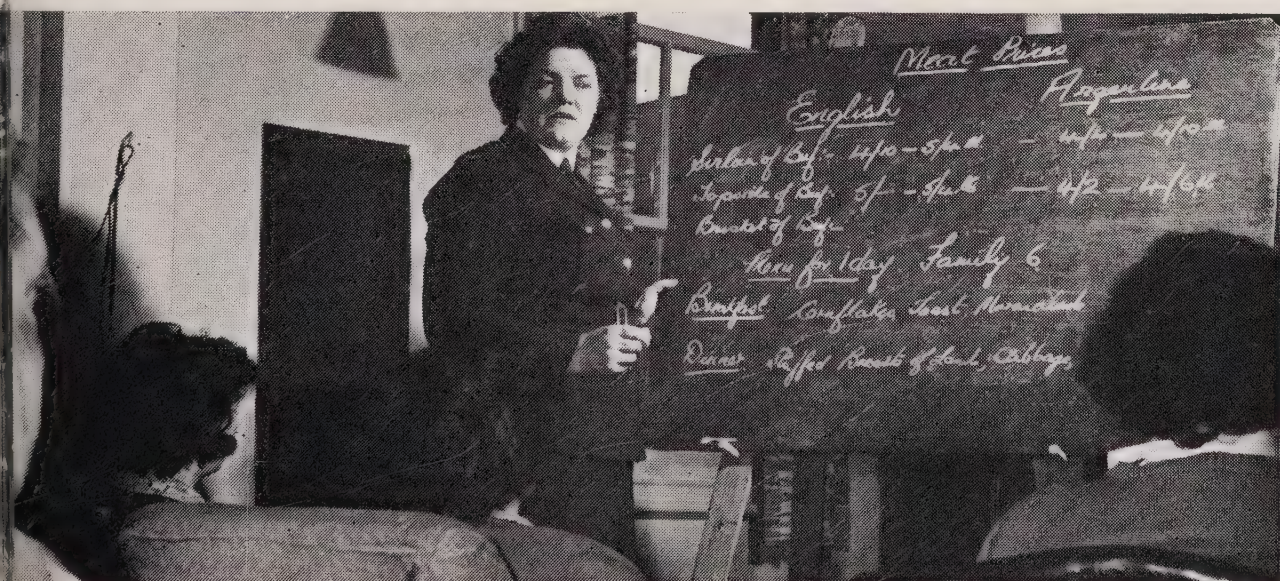 Meat Prices
English Argentine
Sirloin of Beef:- 4/10 - 5/- — 4/10
Topside of Beef: 5/- - — 4/2 — 4/6
Brisket of Beef-
Menu for 1 day Family 6
Breakfast Cornflakes Toast Marmalade
Dinner Stuffed Breast of Lamb, Cabbage,